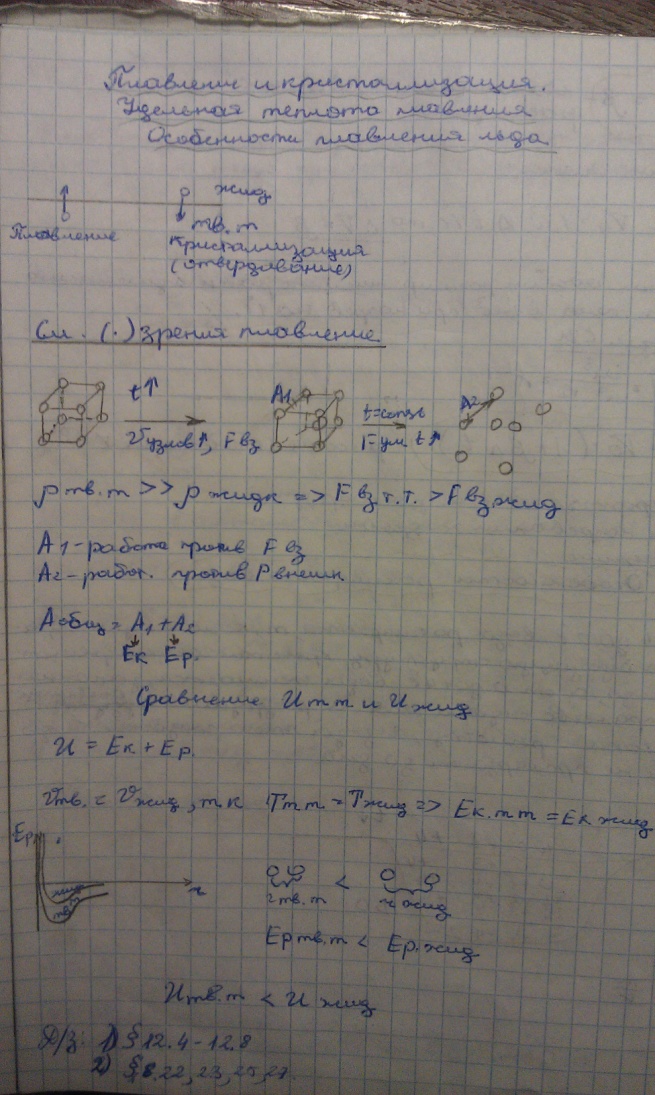 Плавление и кристаллизация.
Удельная теплота плавления
Особенности плавления льда
жид
тв. т
Плавление
Кристаллизация
(отвердование)
См. (·) зрения плавление
t↑ A1 t=const A2
υ узлов↑, Fвз Fум t↑
ρ тв.т >> ρ жидк => F вз т.т. > F вз жид
A1-работа против Fвз
A2-работ. против Pвнешн.
Aобщ = A1 + A2
Eк Eр.
Сравнение U тт и U жид
U = Eк + Eр.
υтв. = υжид, т.к Tтт = Tжид => Eк.тт = Eк жид
Eр
r
жид
тв.т
<
r тв.т r жид
Eр тв.т < Eр. жид
Uтв.т < U жид
Д/з: 1) § 12.4-12.8
2) § 8.22, 23, 25, 27.